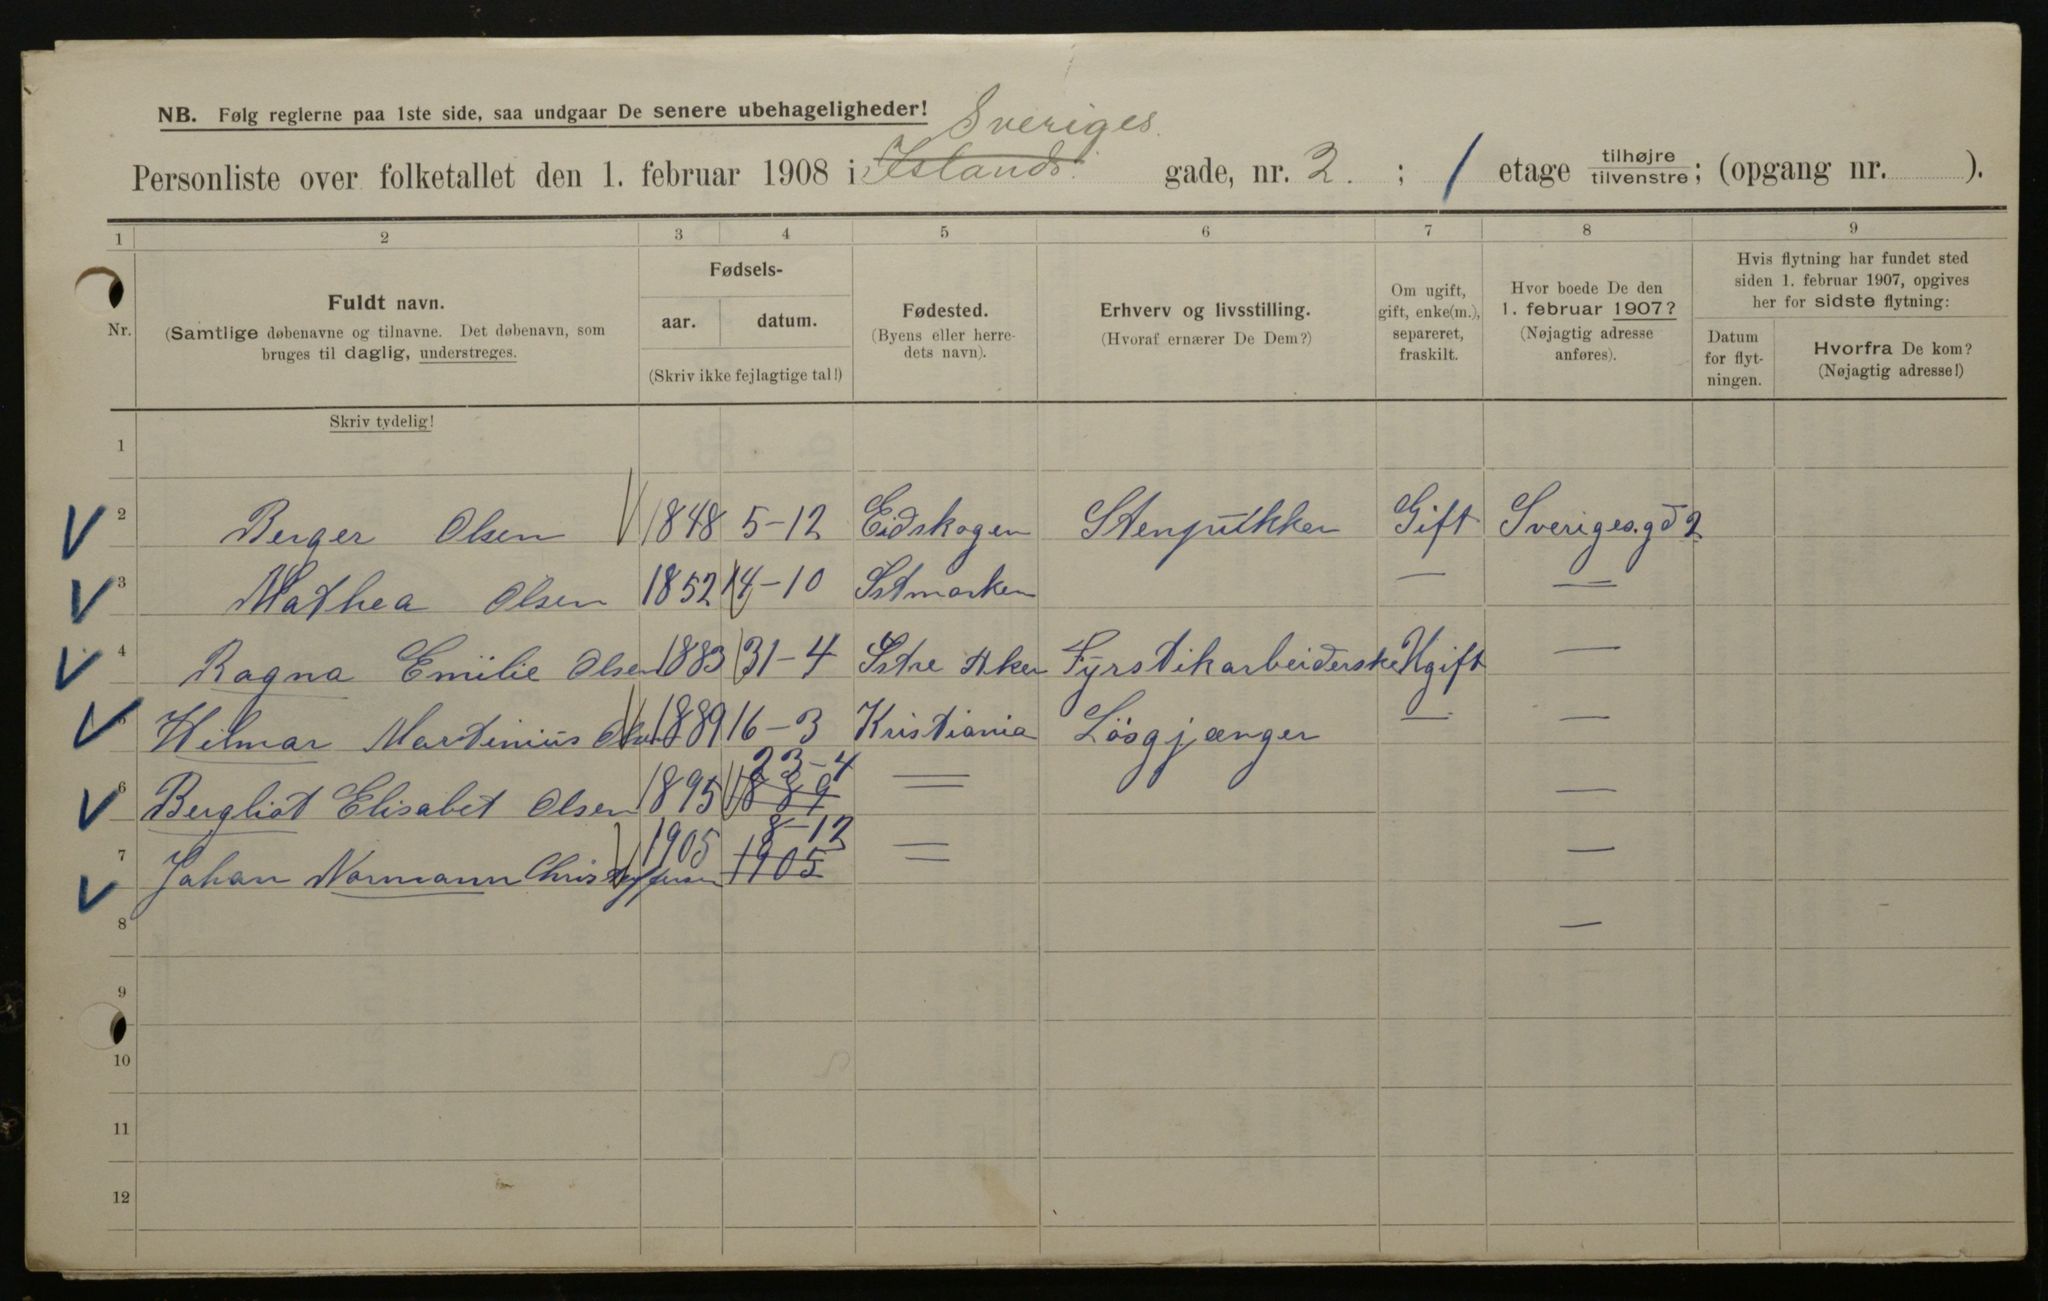 NB. Følg reglerne paa 1ste side, saa undgaar De senere ubehageligheder!
Sveriges
Personliste over folketallet den 1. februar 1908 i Islands gade, nr. 2. ; 1 etage tilhøjre tilvenstre; (opgang nr. ).
1 2 3 4 5 6 7 8 9
Nr.
Fuldt navn.
(Samtlige døbenavne og tilnavne. Det døbenavn, som
bruges til daglig, understreges.
Skriv tydelig!
Fødsels-
aar. datum.
(Skriv ikke fejlagtige tal!)
Fødested.
(Byens eller herre-
dets navn).
Erhverv og livsstilling.
(Hvoraf ernærer De Dem?)
Om ugift,
gift, enke(m.),
separeret,
fraskilt.
Hvor boede De den
1. februar 1907?
(Nøjagtig adresse
anføres).
Hvis flytning har fundet sted
siden 1. februar 1907, opgives
her for sidste flytning:
Datum
for flyt-
ningen.
Hvorfra De kom?
(Nøjagtig adresse!)
1
2 Berger Olsen 1848 5-12 Eidskogen Stenpukker Gift Sveriges.gd 2
3 Mathea Olsen 1852 14-10 Istmarken — —
4 Ragna Emilie Olsen 1883 31-4 Istre Aker Fyrstikarbeiderske Ugift —
5 Hilmar Martinius Olsen 1889 16-3 Kristiania Løsgjænger — —
23-4
6 Bergliot Elisabet Olsen 1895 1889 — —
8-12
7 Johan Normann Christoffersen 1905 1905 — —
8 —
9
10
11
12